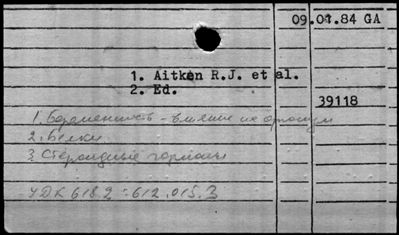 09.01.84 GA
1. Aitken R.J. et al.
2. Ed.
39118
1. Беременность - влияние на
2. Белки
3. Стероидные гормоны
УДК 618.2 : 612.015.3